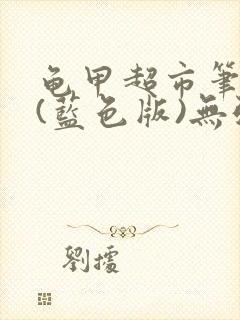 龟甲超市筆
(藍色版)無
劉據